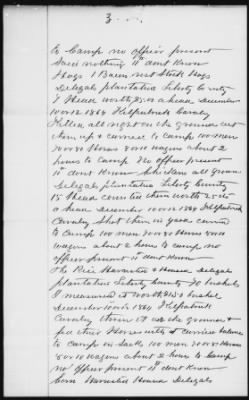 3
to Camp no officer present
Said nothing "I dont Know
Hogs 1 Barn not Stock Hogs
Delegals plantation Liberty County
7 Head worth a head December
10 or 12 1864 Kilpatricks Cavalry
Killed all night on the grounds cut
them up & carried to Camp 100 men
70 or 80 Horses 8 or 10 wagons about 2
hours to Camp No officer present
"I dont Know Chickens all grown
Delegals plantation Liberty County
15 Head counted them worth 25 cts
a head December 10 or 12 1864 Kilpatricks
Cavalry Shot them in yard carried
to Camp 100 men 70 or 80 Horses 8 or 10
wagons about 2 hours to Camp no
officer present "I dont Know
The Rice Harvested & Housed Delegals
plantation Liberty County 70 bushels
I measured it worth a bushel
December 10 or 12 1864 Kilpatricks
Cavalry threw it on the grounds &
fed their Horses with it carried balance
to Camp in Sacks 100 men 70 or 80 Horses
8 or 10 wagons about 2 hours to Camp
no officer present "I dont Know
Corn Harvested Housed Delegals